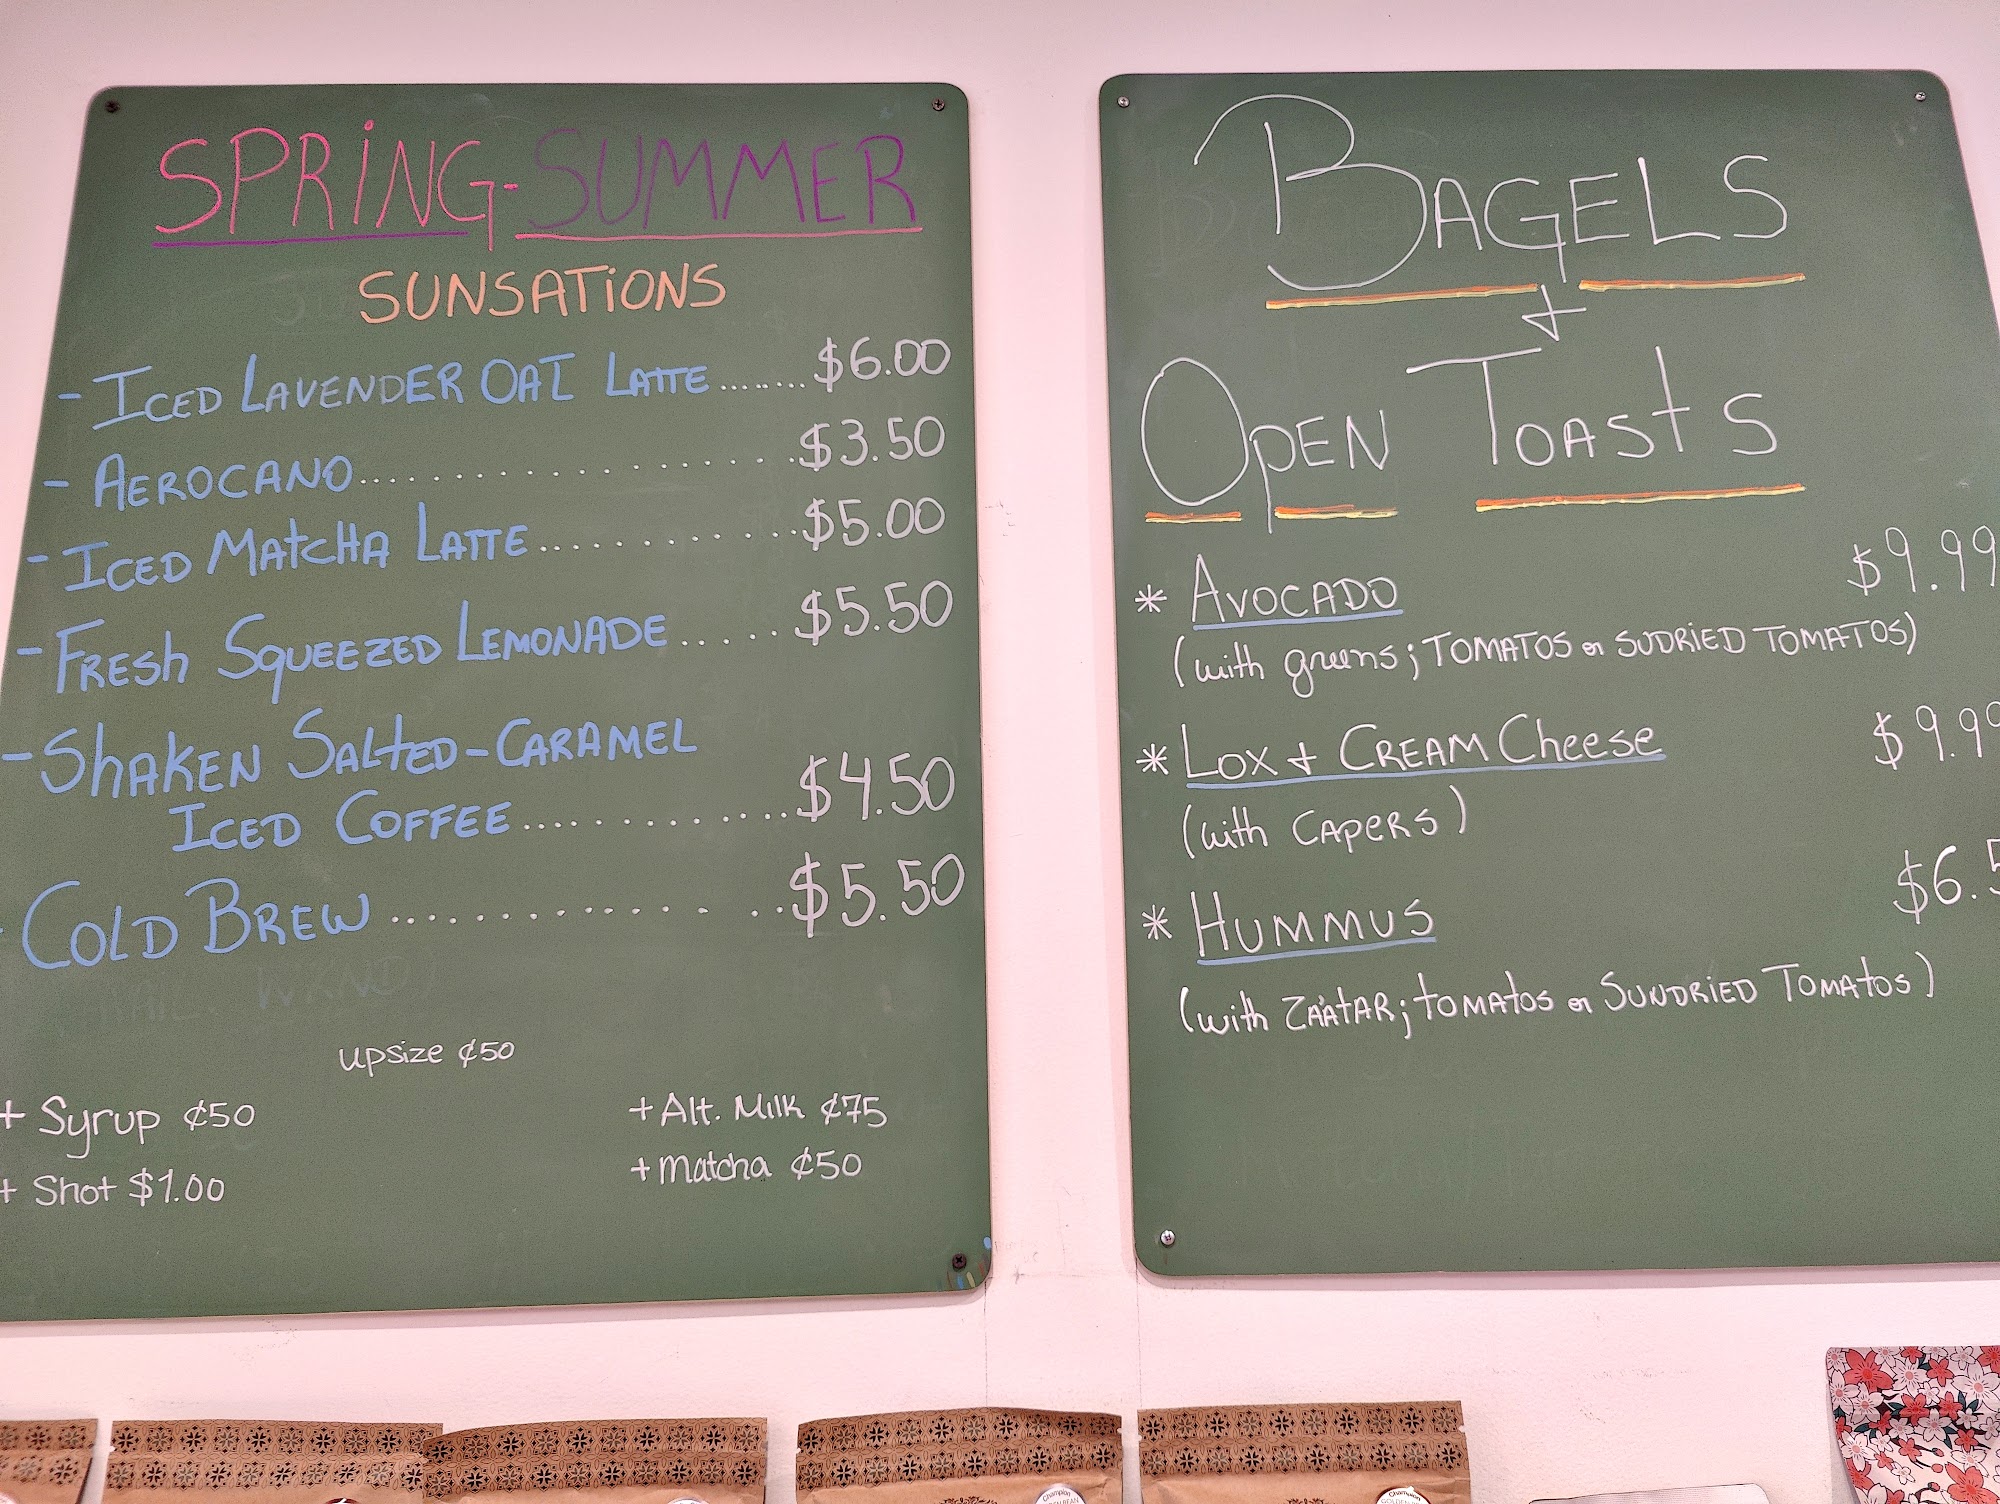 SPRING-SUMMER
SUNSATIONS
- ICED LAVENDER OAT LATTE........$6.00
- AEROCANO..................$3.50
- ICED MATCHA LATTE.............$5.00
- FRESH SQUEEZED LEMONADE.....$5.50
- SHAKEN SALTED-CARAMEL
ICED COFFEE..............$4.50
- COLD BREW...............$5.50
upsize ¢50
+ Syrup ¢50
+ Shot $1.00
+ Alt. Milk ¢75
+ matcha ¢50
BAGELS
+
OPEN TOASTS
* AVOCADO $9.99
(with greens; TOMATOS or SUDRIED TOMATOS)
* LOX + CREAM Cheese $9.99
(with CAPERS)
* HUMMUS $6.5
(with ZA'ATAR; TOMATOS or SUNDRIED TOMATOS)
Champion
Champion